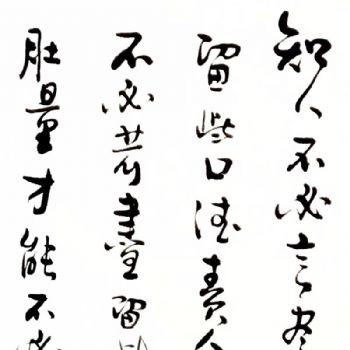 知人不必言尽
留些口德責人
不必苛盡留些
肚量才能不必